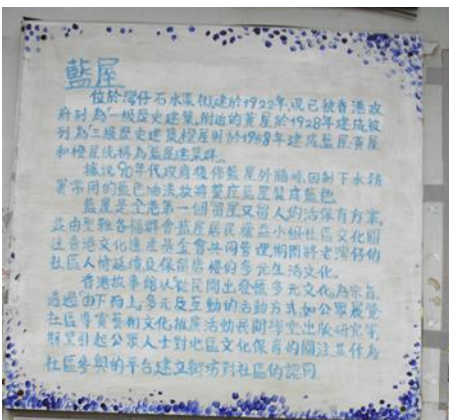 藍屋
位於灣仔石水渠街,建於1922年,現已被香港政
府列為「一級歷史建築,附近的黃屋於1928年建成被
列為「三級歷史建築,橙屋則於1958年建成.藍屋.黃屋
和橙屋統稱為藍屋建築群.
據說90年代政府復修藍屋外牆時,因剩下水務
署常用的藍色油漆,故將整座藍屋髹成藍色.
藍屋是全港第一個留屋又留人的活保育方案,
並由聖雅各福群會.藍屋居民權益小組.社區文化關
注香港文化遺產基金會共同管理,期間將老灣仔的
社區人情延續及保留唐樓的多元生活文化.
香港故事館以從民間出發推多元文化為宗旨,
透過由下而上,多元及互動的活動方式,如公眾展覽
社區導賞藝術文化推廣活動民間學堂出版研究等,
期望引起公眾人士對地區文化保育的關注並作為
社區參與的平台建立街坊對社區的認同.